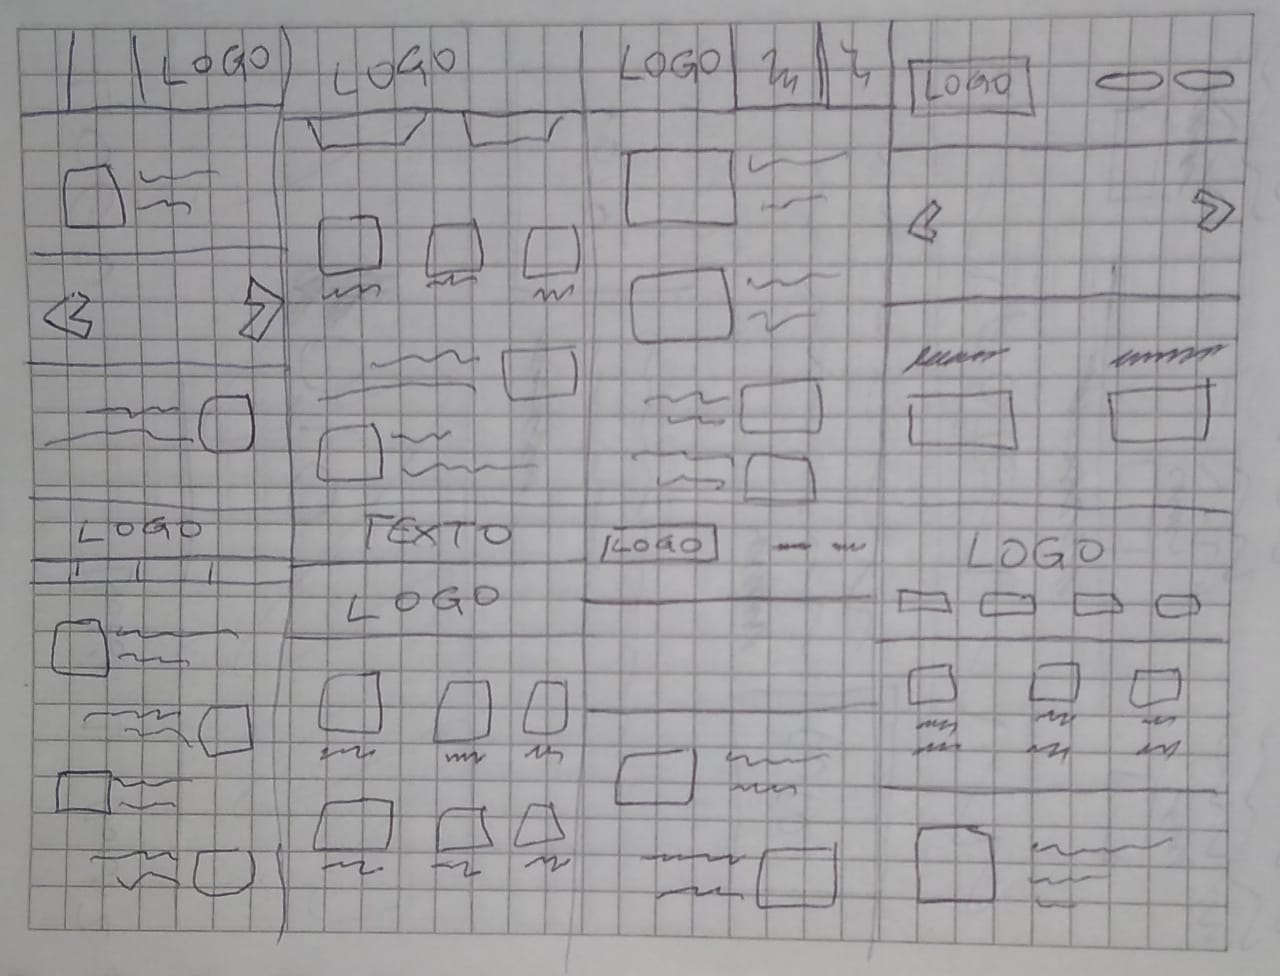 LOGO
LOGO
LOGO
LOGO
LOGO
TEXTO
LOGO
LOGO
LOGO